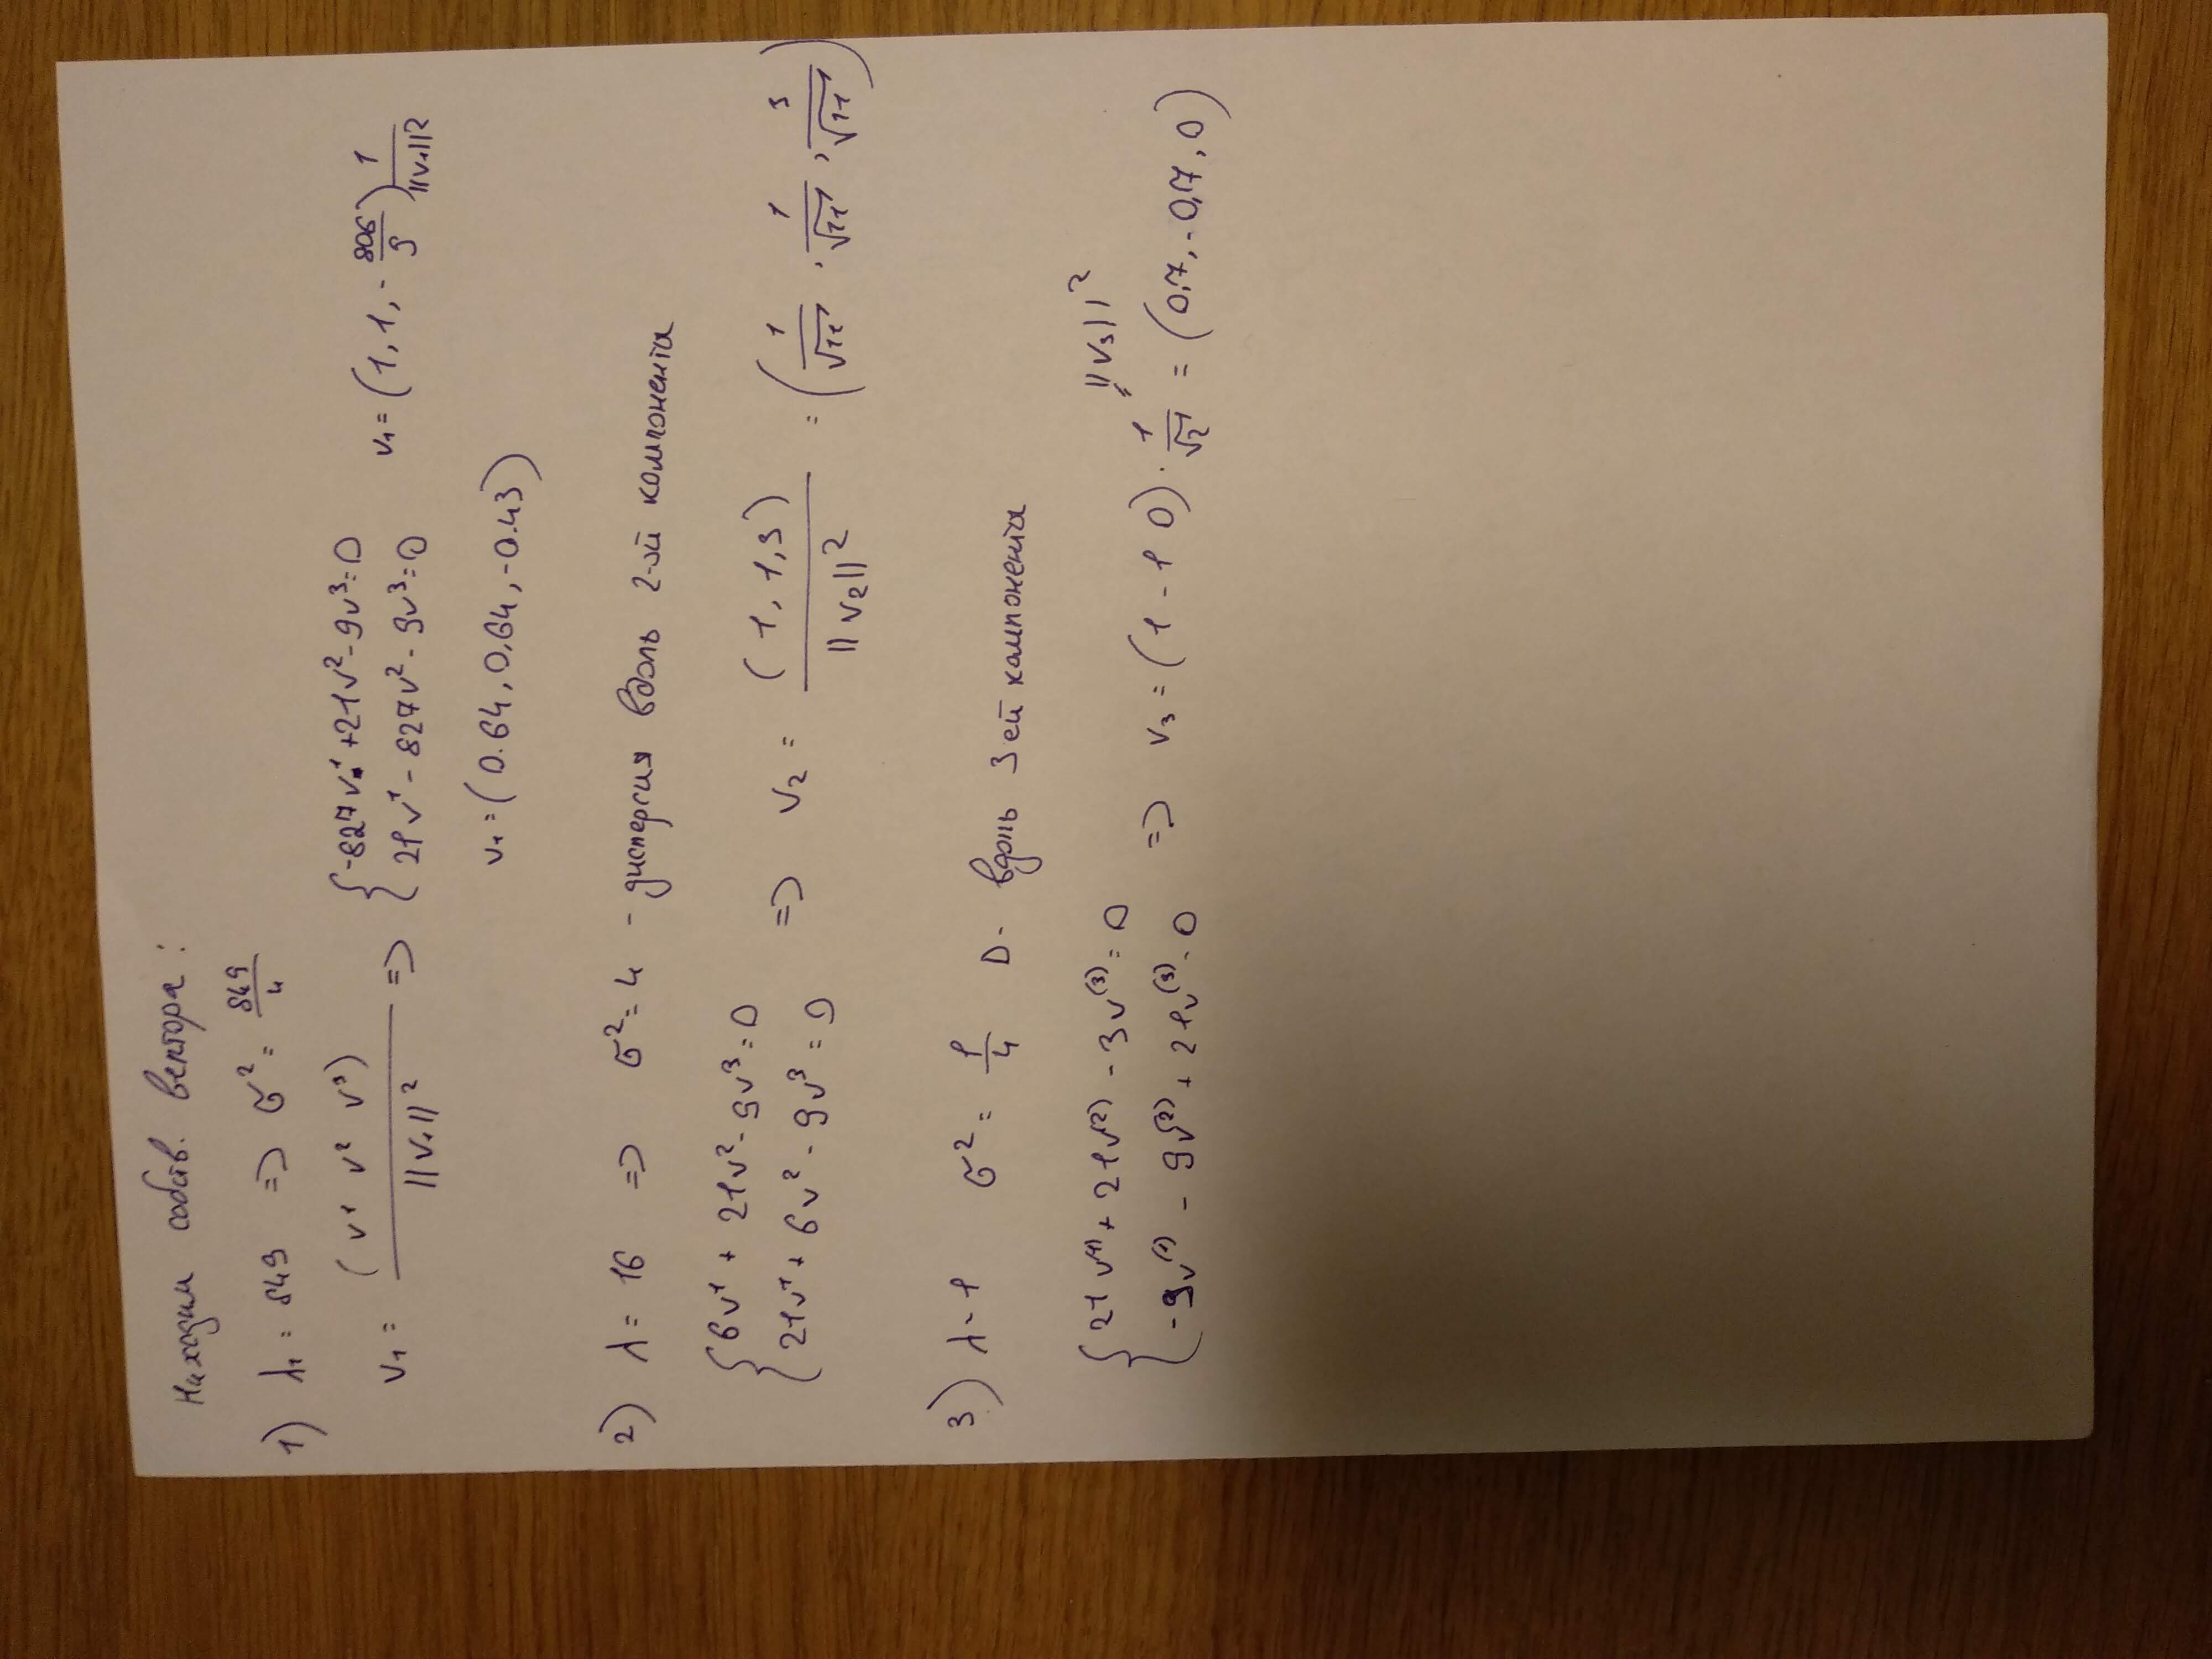 Находим собств. вектора :
1) λ₁ = 849 => σ² = 849/4
v₁ = (v¹ v² v³) / ||v₁||² => { -827v¹ + 21v² - 9v³ = 0
21v¹ - 827v² - 9v³ = 0
v₁ = (1, 1, - 806/9) 1/||v₁||²
v₁ = (0.64, 0,64, -0.43)
2) λ = 16 => σ² = 4 - дисперсия вдоль 2-ой компоненты
{ 6v¹ + 21v² - 9v³ = 0
21v¹ + 6v² - 9v³ = 0
=> v₂ = (1, 1, 3) / ||v₂||² = (1/√11, 1/√11, 3/√11)
3) λ = 1 σ² = 1/4 D - вдоль 3ей компоненты
{ 21v⁽¹⁾ + 21v⁽²⁾ - 9v⁽³⁾ = 0
-9v⁽¹⁾ - 9v⁽²⁾ + 21v⁽³⁾ = 0
||v₃||²
=> v₃ = (1 -1 0) · 1/√2 = (0,7, -0,7, 0)